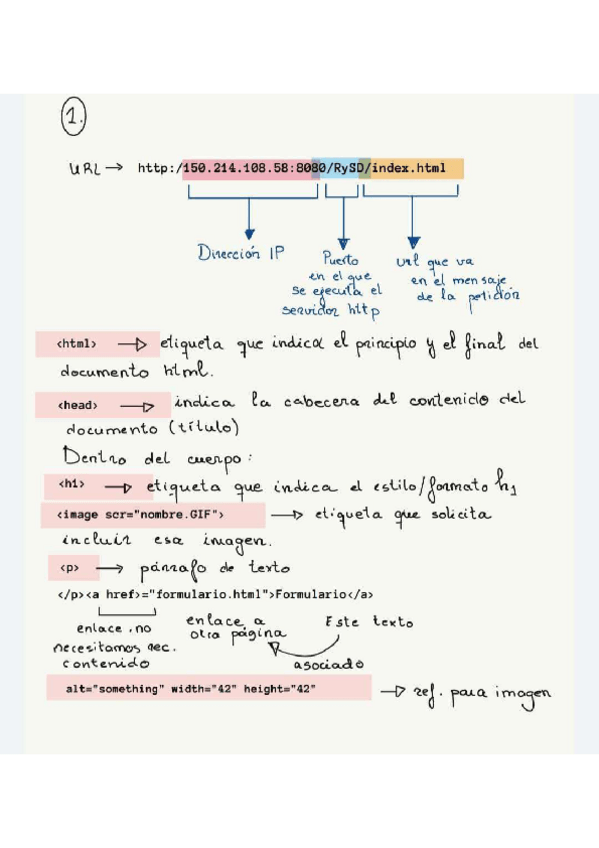 1.
URL → http:/150.214.108.58:8080/RySD/index.html
Dirección IP
Puerto
en el que
se ejecuta el
servidor http
url que va
en el mensaje
de la petición
<html> → etiqueta que indica el principio y el final del
documento html.
<head> → indica la cabecera del contenido del
documento (título)
Dentro del cuerpo:
<h1> → etiqueta que indica el estilo/formato h1
<image scr="nombre.GIF"> → etiqueta que solicita
incluir esa imagen.
<p> → párrafo de texto
</p><a href>="formulario.html">Formulario</a>
enlace, no
necesitamos rec.
contenido
enlace a
otra página
Este texto
asociado
alt="something" width="42" height="42" → ref. para imagen